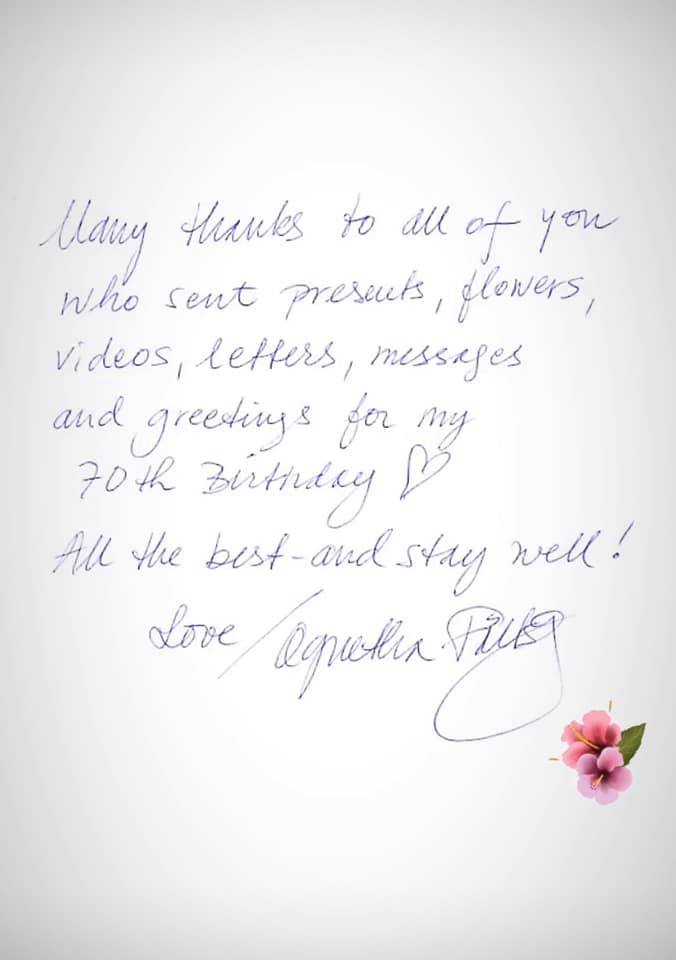 Many thanks to all of you
who sent presents, flowers,
videos, letters, messages
and greetings for my
70th Birthday ♡
All the best-and stay well!
Love / Agnetha Fältskog